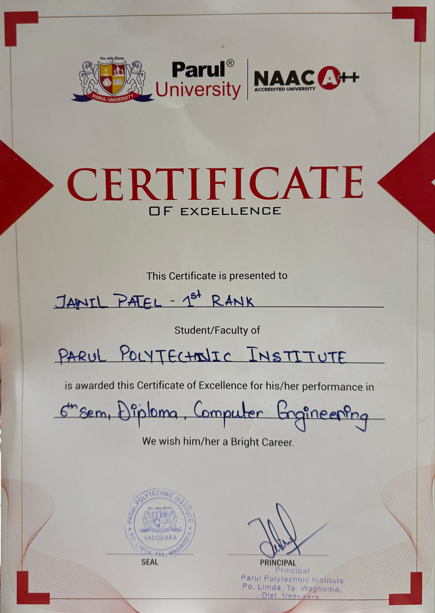 PARUL UNIVERSITY
Parul®
University
NAAC A++
ACCREDITED UNIVERSITY
CERTIFICATE
OF EXCELLENCE
This Certificate is presented to
JANIL PATEL - 1st RANK
Student/Faculty of
PARUL POLYTECHNIC INSTITUTE
is awarded this Certificate of Excellence for his/her performance in
6th Sem, Diploma, Computer Engineering
We wish him/her a Bright Career.
PARUL POLYTECHNIC INSTITUTE
VADODARA
PO. LIMDA, TAL. WAGHODIA
SEAL
PRINCIPAL
Principal
Parul Polytechnic Institute
Po. Limda, Ta. Waghodia,
Dist. Vadodara